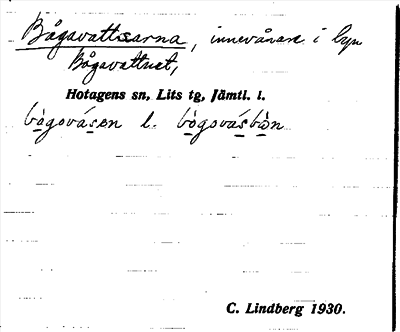 Bågavattsarna, innevånare i byn
Bågavattnet,
Hotagens sn, Lits tg, Jämtl. l.
bògovásɛn l. bògovásbòn
C. Lindberg 1930.